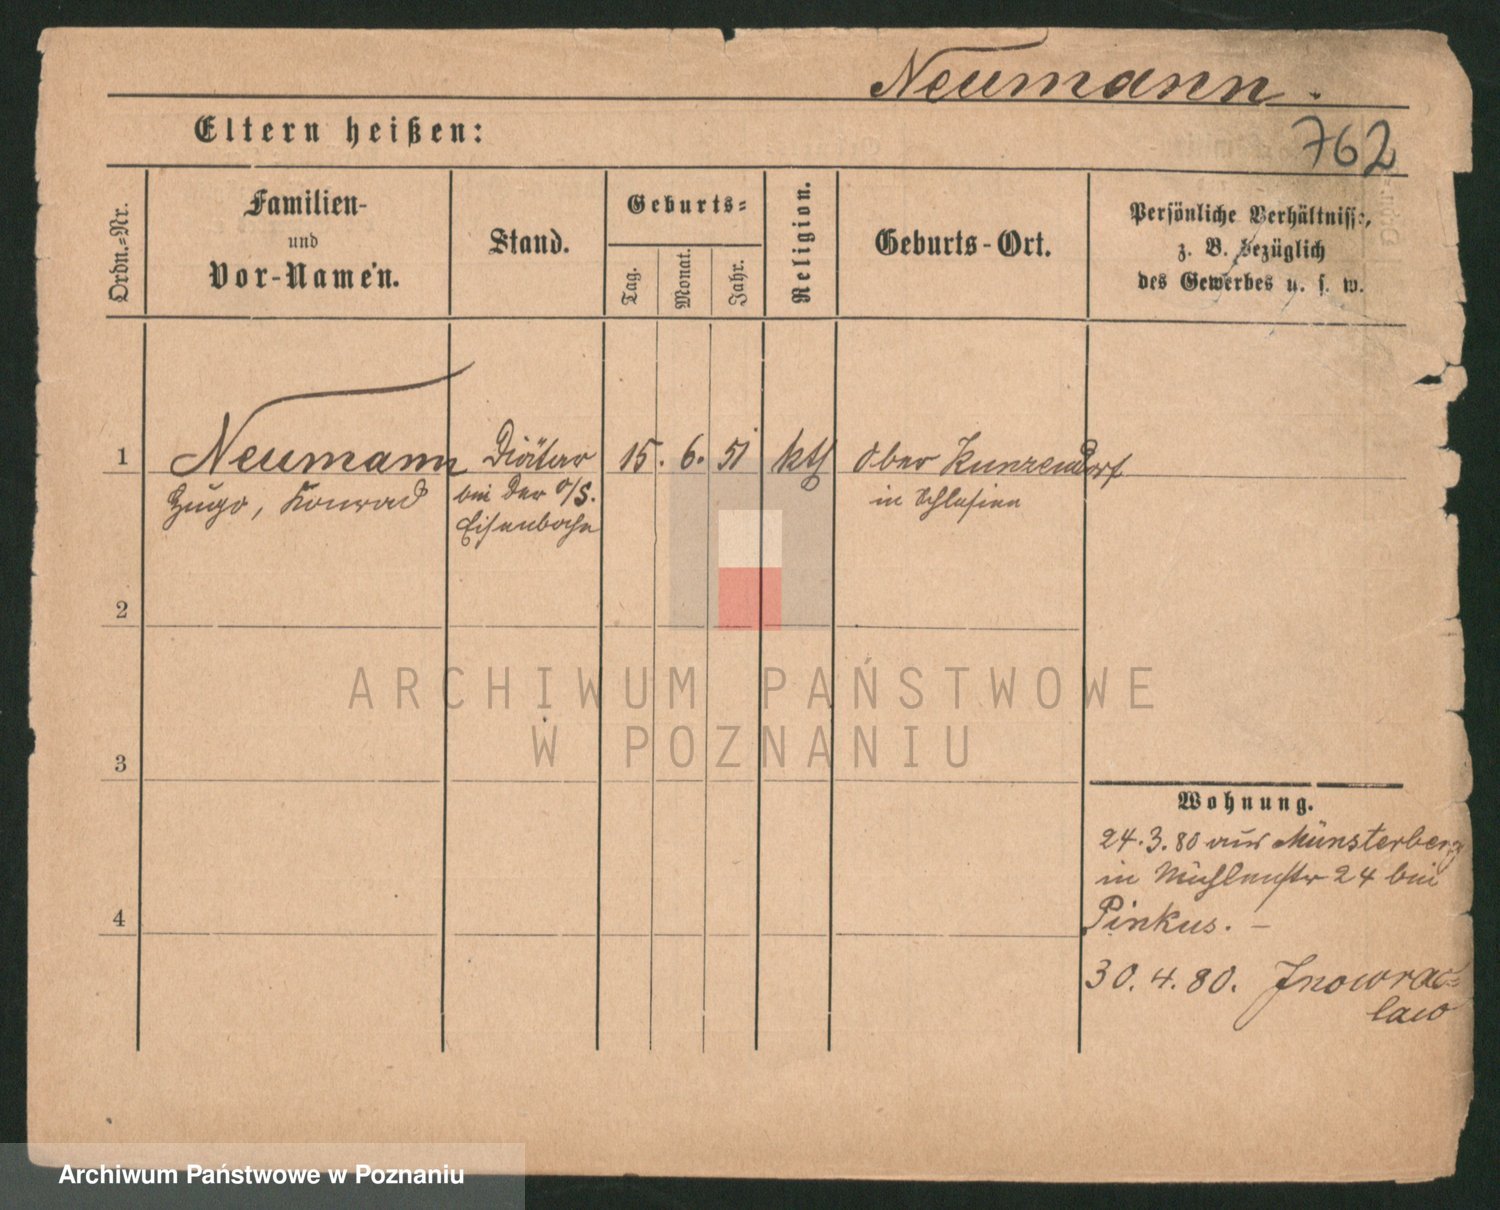 Neumann.
762
Eltern heißen:
Ordn.-Nr.
Familien-
und
Vor-Namen.
Stand.
Geburts-
Tag.
Monat.
Jahr.
Religion.
Geburts-Ort.
Persönliche Verhältnisse,
z. B. bezüglich
des Gewerbes u. s. w.
1
Neumann
Hugo, Konrad
Diätar
bei der O/S.
Eisenbahn
15. 6. 51
kth
Ober Kunzendorf
in Schlesien
2
3
4
Wohnung.
24.3.80 aus Münsterberg
in Mühlenstr 24 bei
Pinkus. —
30.4.80. Inowrac-
law
ARCHIWUM PAŃSTWOWE
W POZNANIU
Archiwum Państwowe w Poznaniu